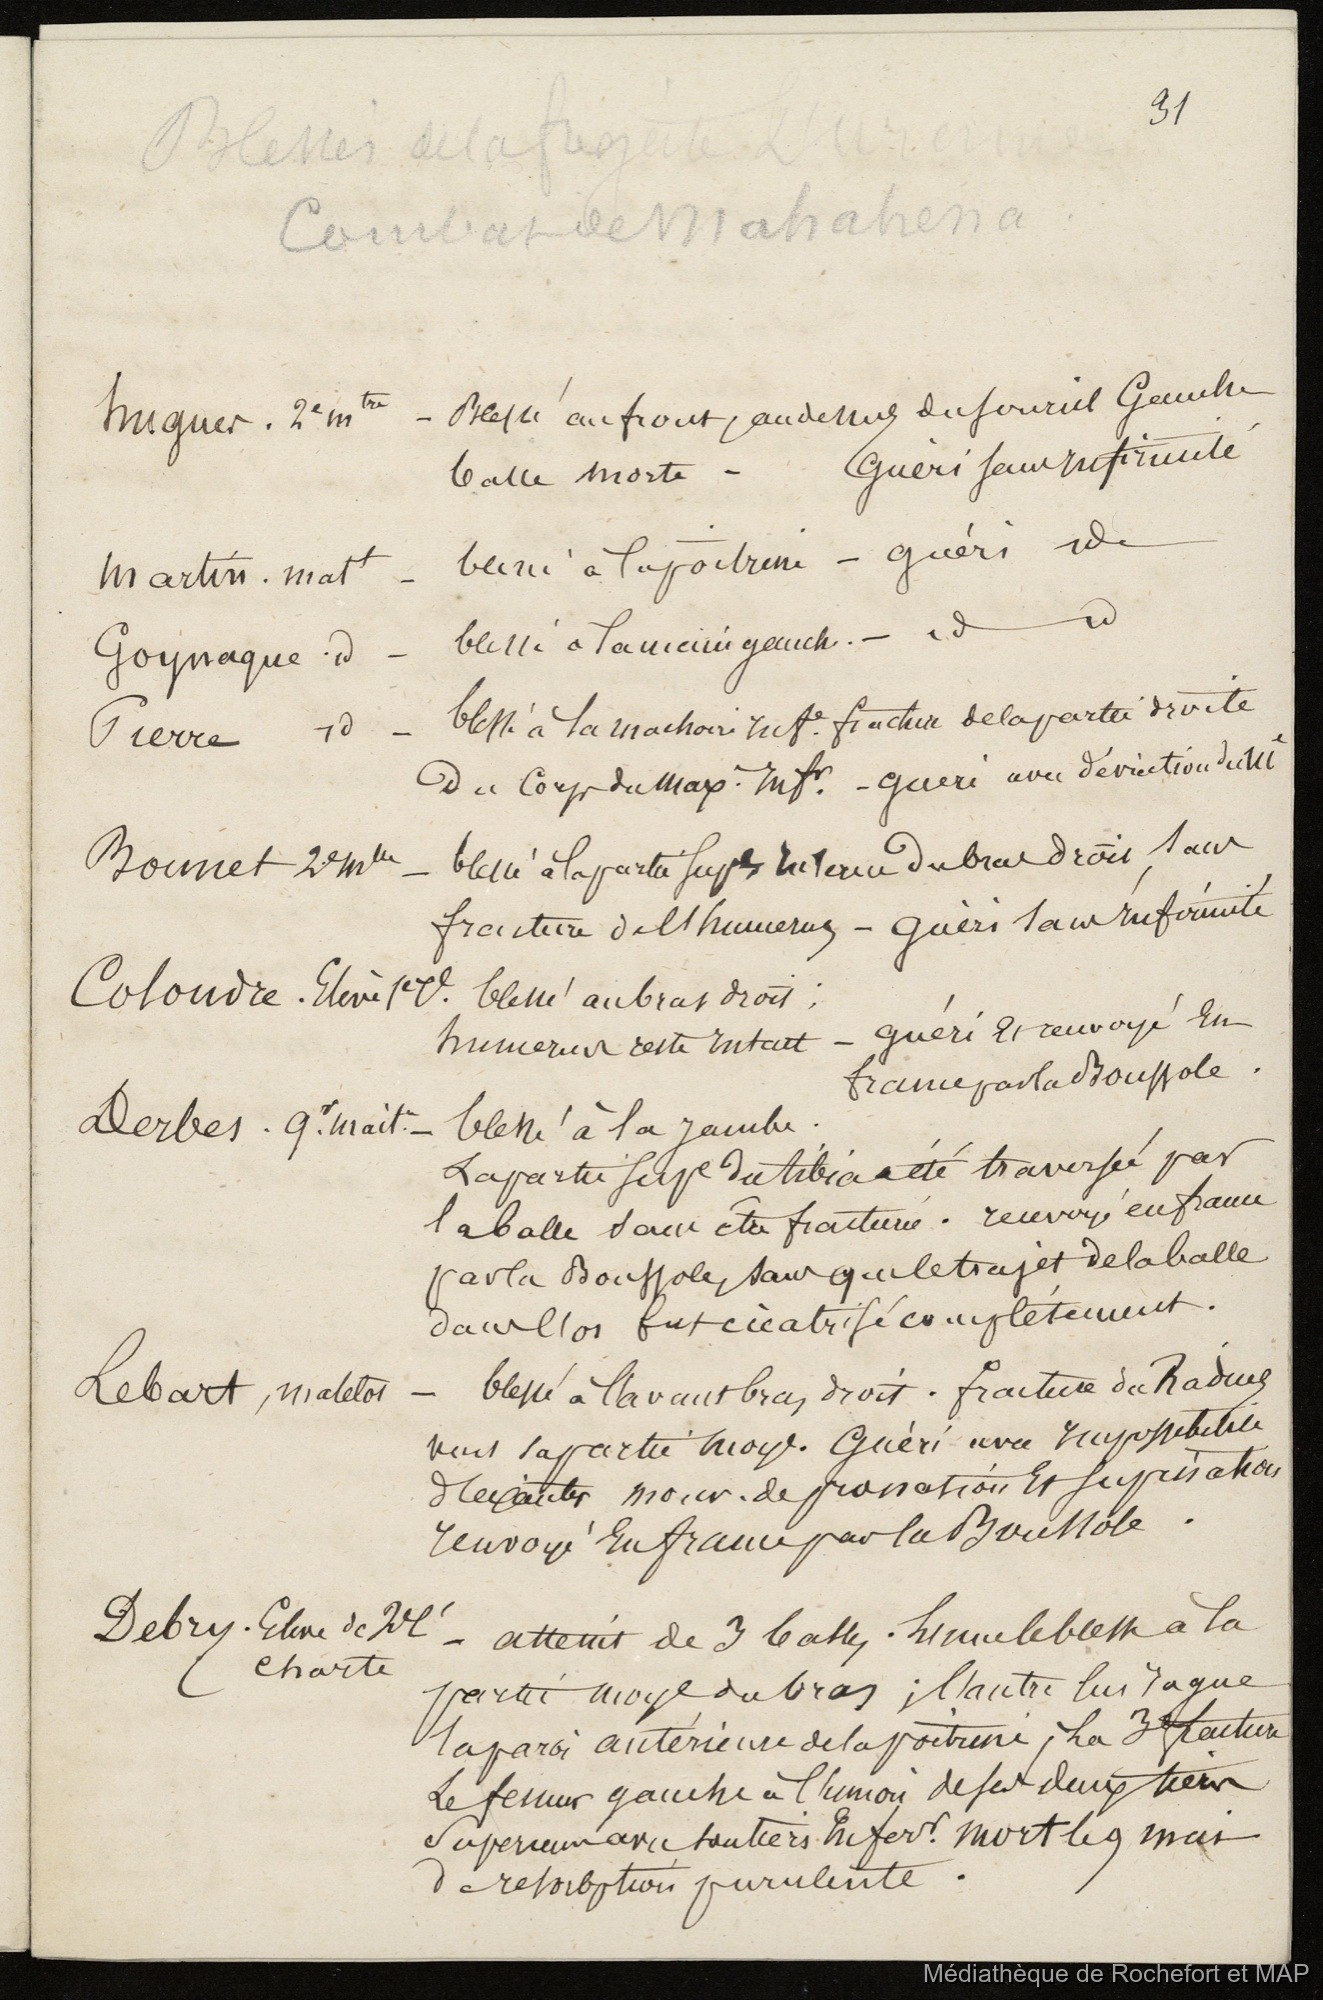 31
Blessés de la frégate L'uranie
Combat de Mahahena.
huguer. 2e mtre - Blessé au front, audessus du sourcil Gauche
balle morte - Guéri sans infirmité
Martin. matt - blessé à la poitrine - guéri id
Goynaque. id - blessé à la main gauche. - id id
Pierre id - blessé à la machoire infe. fracture de la partie droite
Du Corps du max. infr. - gueri avec déviation du M
Bonnet 2e mtre - blessé à la partie supre interne du bras droit, sans
fracture de l'humerus - guéri sans infirmité
Colondre. Elève blessé au bras droit;
humerus reste intact - guéri Et renvoyé En
france par la Boussole.
Derbes. qr. mait. - blessé à la jambe.
La partie supe du tibia a été traversée par
la balle sans être fracturé. renvoyé en france
par la Boussole, sans que le trajet de la balle
dans l'os fut cicatrisé complétement.
Lebart, matelot - blessé à l'avant bras droit. fracture du Radius
vers sa partie moye. Guéri avec impossibilité
d'exécuter mouv. de pronation Et supination
renvoyé En france par la Boussole.
Debry. Elève de 2e cl - atteint de 3 balles. l'une le blesse à la
charte
partie moye du bras; l'autre lui
la paroi antérieure de la poitrine; La 3e fracture
Le femur gauche à l'union de ses deux tiers
Superieurs avec son tiers inferr. mort le 9 mai
de resorbption purulente.
Médiathèque de Rochefort et MAP